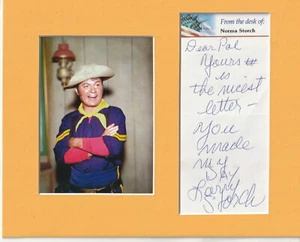 From the desk of:
Norma Storch
Dear Pal
Yours
is
the nicest
letter -
You
made
my
Day
Larry
Storch